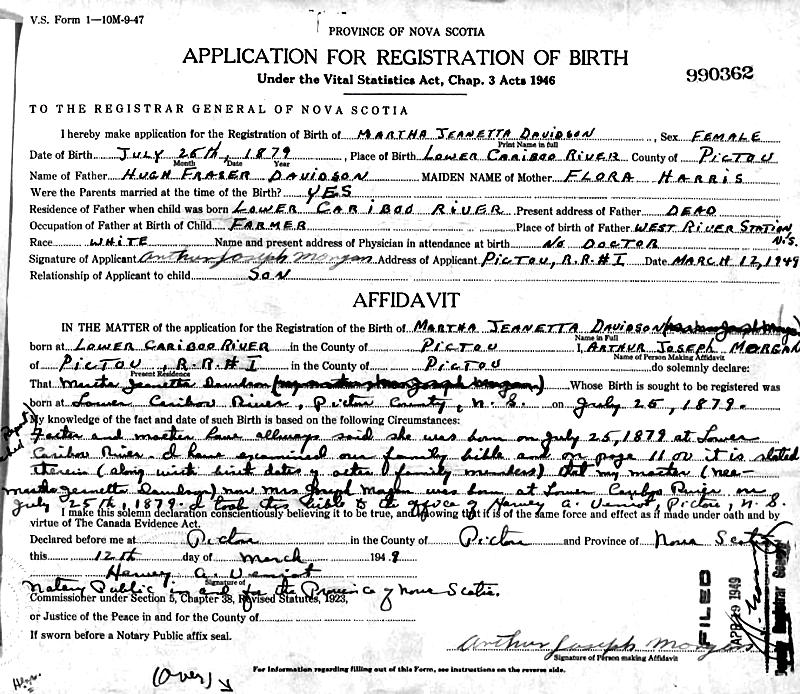 V.S. Form 1—10M-9-47
PROVINCE OF NOVA SCOTIA
APPLICATION FOR REGISTRATION OF BIRTH
Under the Vital Statistics Act, Chap. 3 Acts 1946
990362
TO THE REGISTRAR GENERAL OF NOVA SCOTIA
I hereby make application for the Registration of Birth of MARTHA JEANETTA DAVIDSON, Sex FEMALE
Print Name in full
Date of Birth JULY 25TH, 1879, Place of Birth LOWER CARIBOO RIVER County of PICTOU
Month Date Year
Name of Father HUGH FRASER DAVIDSON MAIDEN NAME of Mother FLORA HARRIS
Were the Parents married at the time of the Birth? YES
Residence of Father when child was born LOWER CARIBOO RIVER Present address of Father DEAD
Occupation of Father at Birth of Child FARMER Place of birth of Father WEST RIVER STATION, N.S.
Race WHITE Name and present address of Physician in attendance at birth NO DOCTOR
Signature of Applicant Arthur Joseph Morgan Address of Applicant PICTOU, R.R.#1 Date MARCH 12, 1949
Relationship of Applicant to child SON
AFFIDAVIT
IN THE MATTER of the application for the Registration of the Birth of MARTHA JEANETTA DAVIDSON
Name in Full
born at LOWER CARIBOO RIVER in the County of PICTOU I, ARTHUR JOSEPH MORGAN
Name of Person Making Affidavit
of PICTOU, R.R.#1 in the County of PICTOU do solemnly declare:
Present Residence
That Martha Jeanetta Davidson Whose Birth is sought to be registered was
born at Lower Cariboo River, Pictou County, N.S. on July 25, 1879.
My knowledge of the fact and date of such Birth is based on the following Circumstances:
Father and mother have allways said she was born on July 25, 1879 at Lower
Cariboo River. I have examined our family bible and on page 11 it is stated
therein (along with birth dates of other family members) that my mother (nee-
Martha Jeanetta Davidson) now Mrs Joseph Morgan was born at Lower Cariboo River on
July 25th, 1879. I took this bible to the office of Harvey A. Veniot, Pictou, N.S.
I make this solemn declaration conscientiously believing it to be true, and knowing that it is of the same force and effect as if made under oath and by
virtue of The Canada Evidence Act.
Declared before me at Pictou in the County of Pictou and Province of Nova Scotia
this 12th day of March 1949
Harvey A. Veniot
Signature of
Notary Public in and for the Province of Nova Scotia.
Commissioner under Section 5, Chapter 38, Revised Statutes, 1923,
or Justice of the Peace in and for the County of
If sworn before a Notary Public affix seal.
FILED
APR 19 1949
Deputy Registrar General
Arthur Joseph Morgan
Signature of Person making Affidavit
(Over)
For Information regarding filling out of this Form, see instructions on the reverse side.